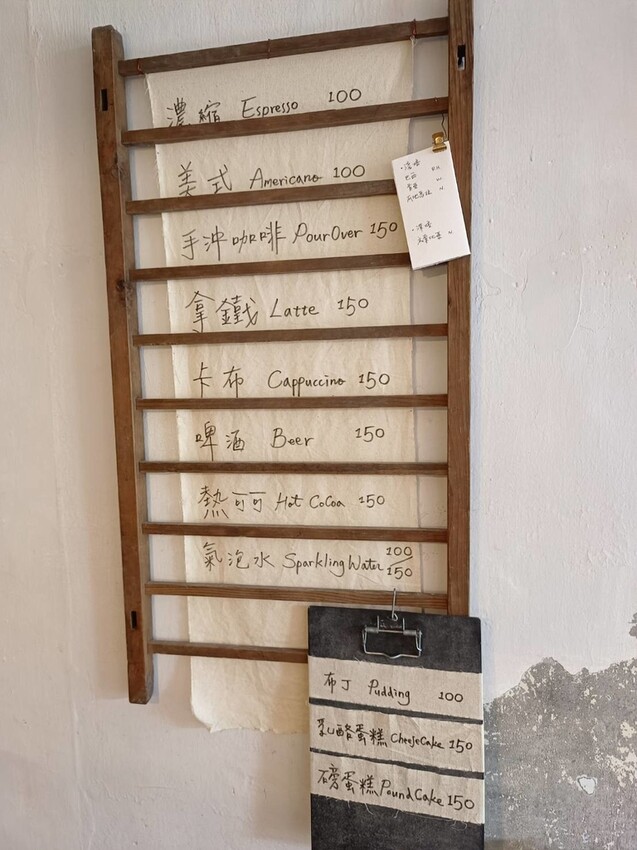 濃縮 Espresso 100
美式 Americano 100
手沖咖啡 Pour Over 150
拿鐵 Latte 150
卡布 Cappuccino 150
啤酒 Beer 150
熱可可 Hot CoCoa 150
氣泡水 Sparkling Water 100/150
布丁 Pudding 100
乳酪蛋糕 CheeseCake 150
磅蛋糕 Pound Cake 150